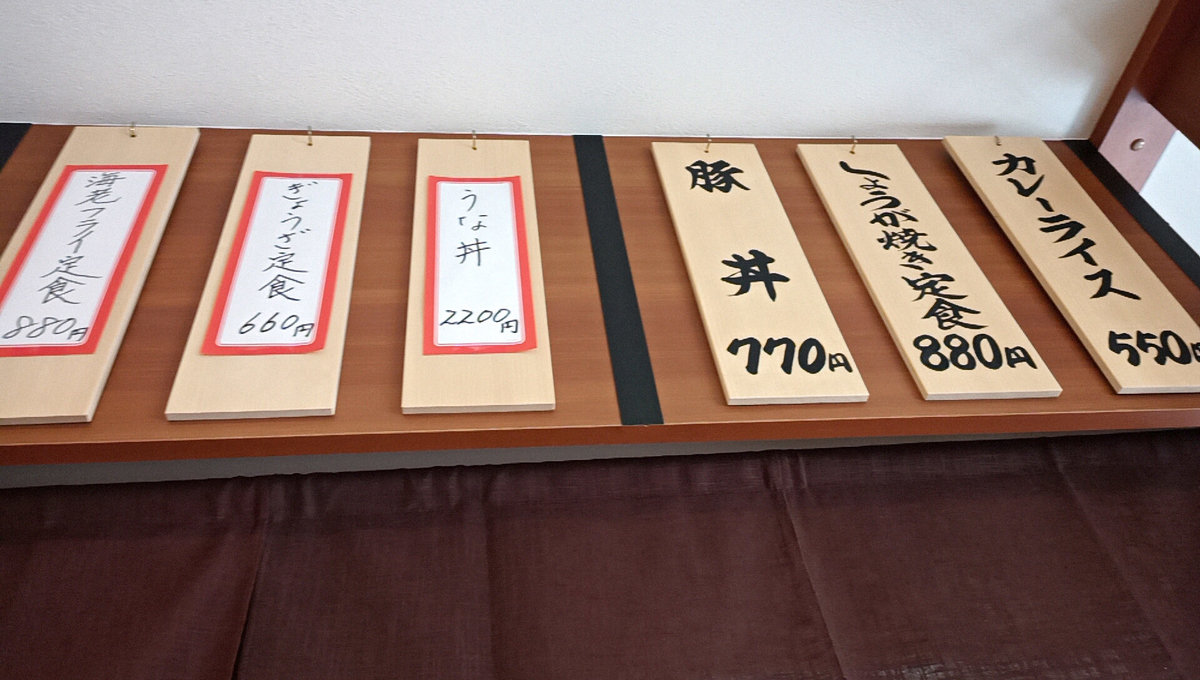 海老フライ定食
880円
ぎょうざ定食
660円
うな丼
2200円
豚丼
770円
しょうが焼き定食
880円
カレーライス
550円